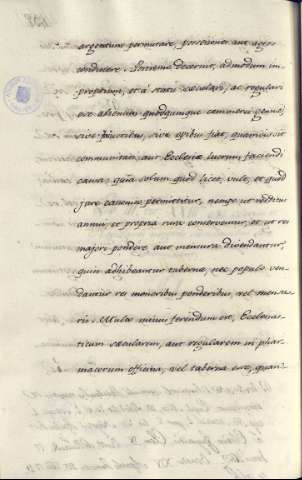 argentum permutare, possessiones aut agros
conducere. Postremo decernit, admodum im-
proprium, et à statu sæculari, ac regulari
esse alienum quodcumque commercii genus,
sive jumentis, sive opibus fiat, quamvis sit
communitati, aut Ecclesiæ lucrum faciendi
causa; quia solum quod licet, vult, et quod
jure canonico permittitur, nempe ut redditus
annui, et propria rura conserventur, et ut res
majori pondere, aut mensura divendantur,
quin adhibeantur tabernæ, nec populo ven-
dantur res minoribus ponderibus, vel mensu-
ris. Multo minus ferendum est, Ecclesias-
ticum sæcularem, aut regularem in phar-
macorum officina, vel taberna esse, quam-